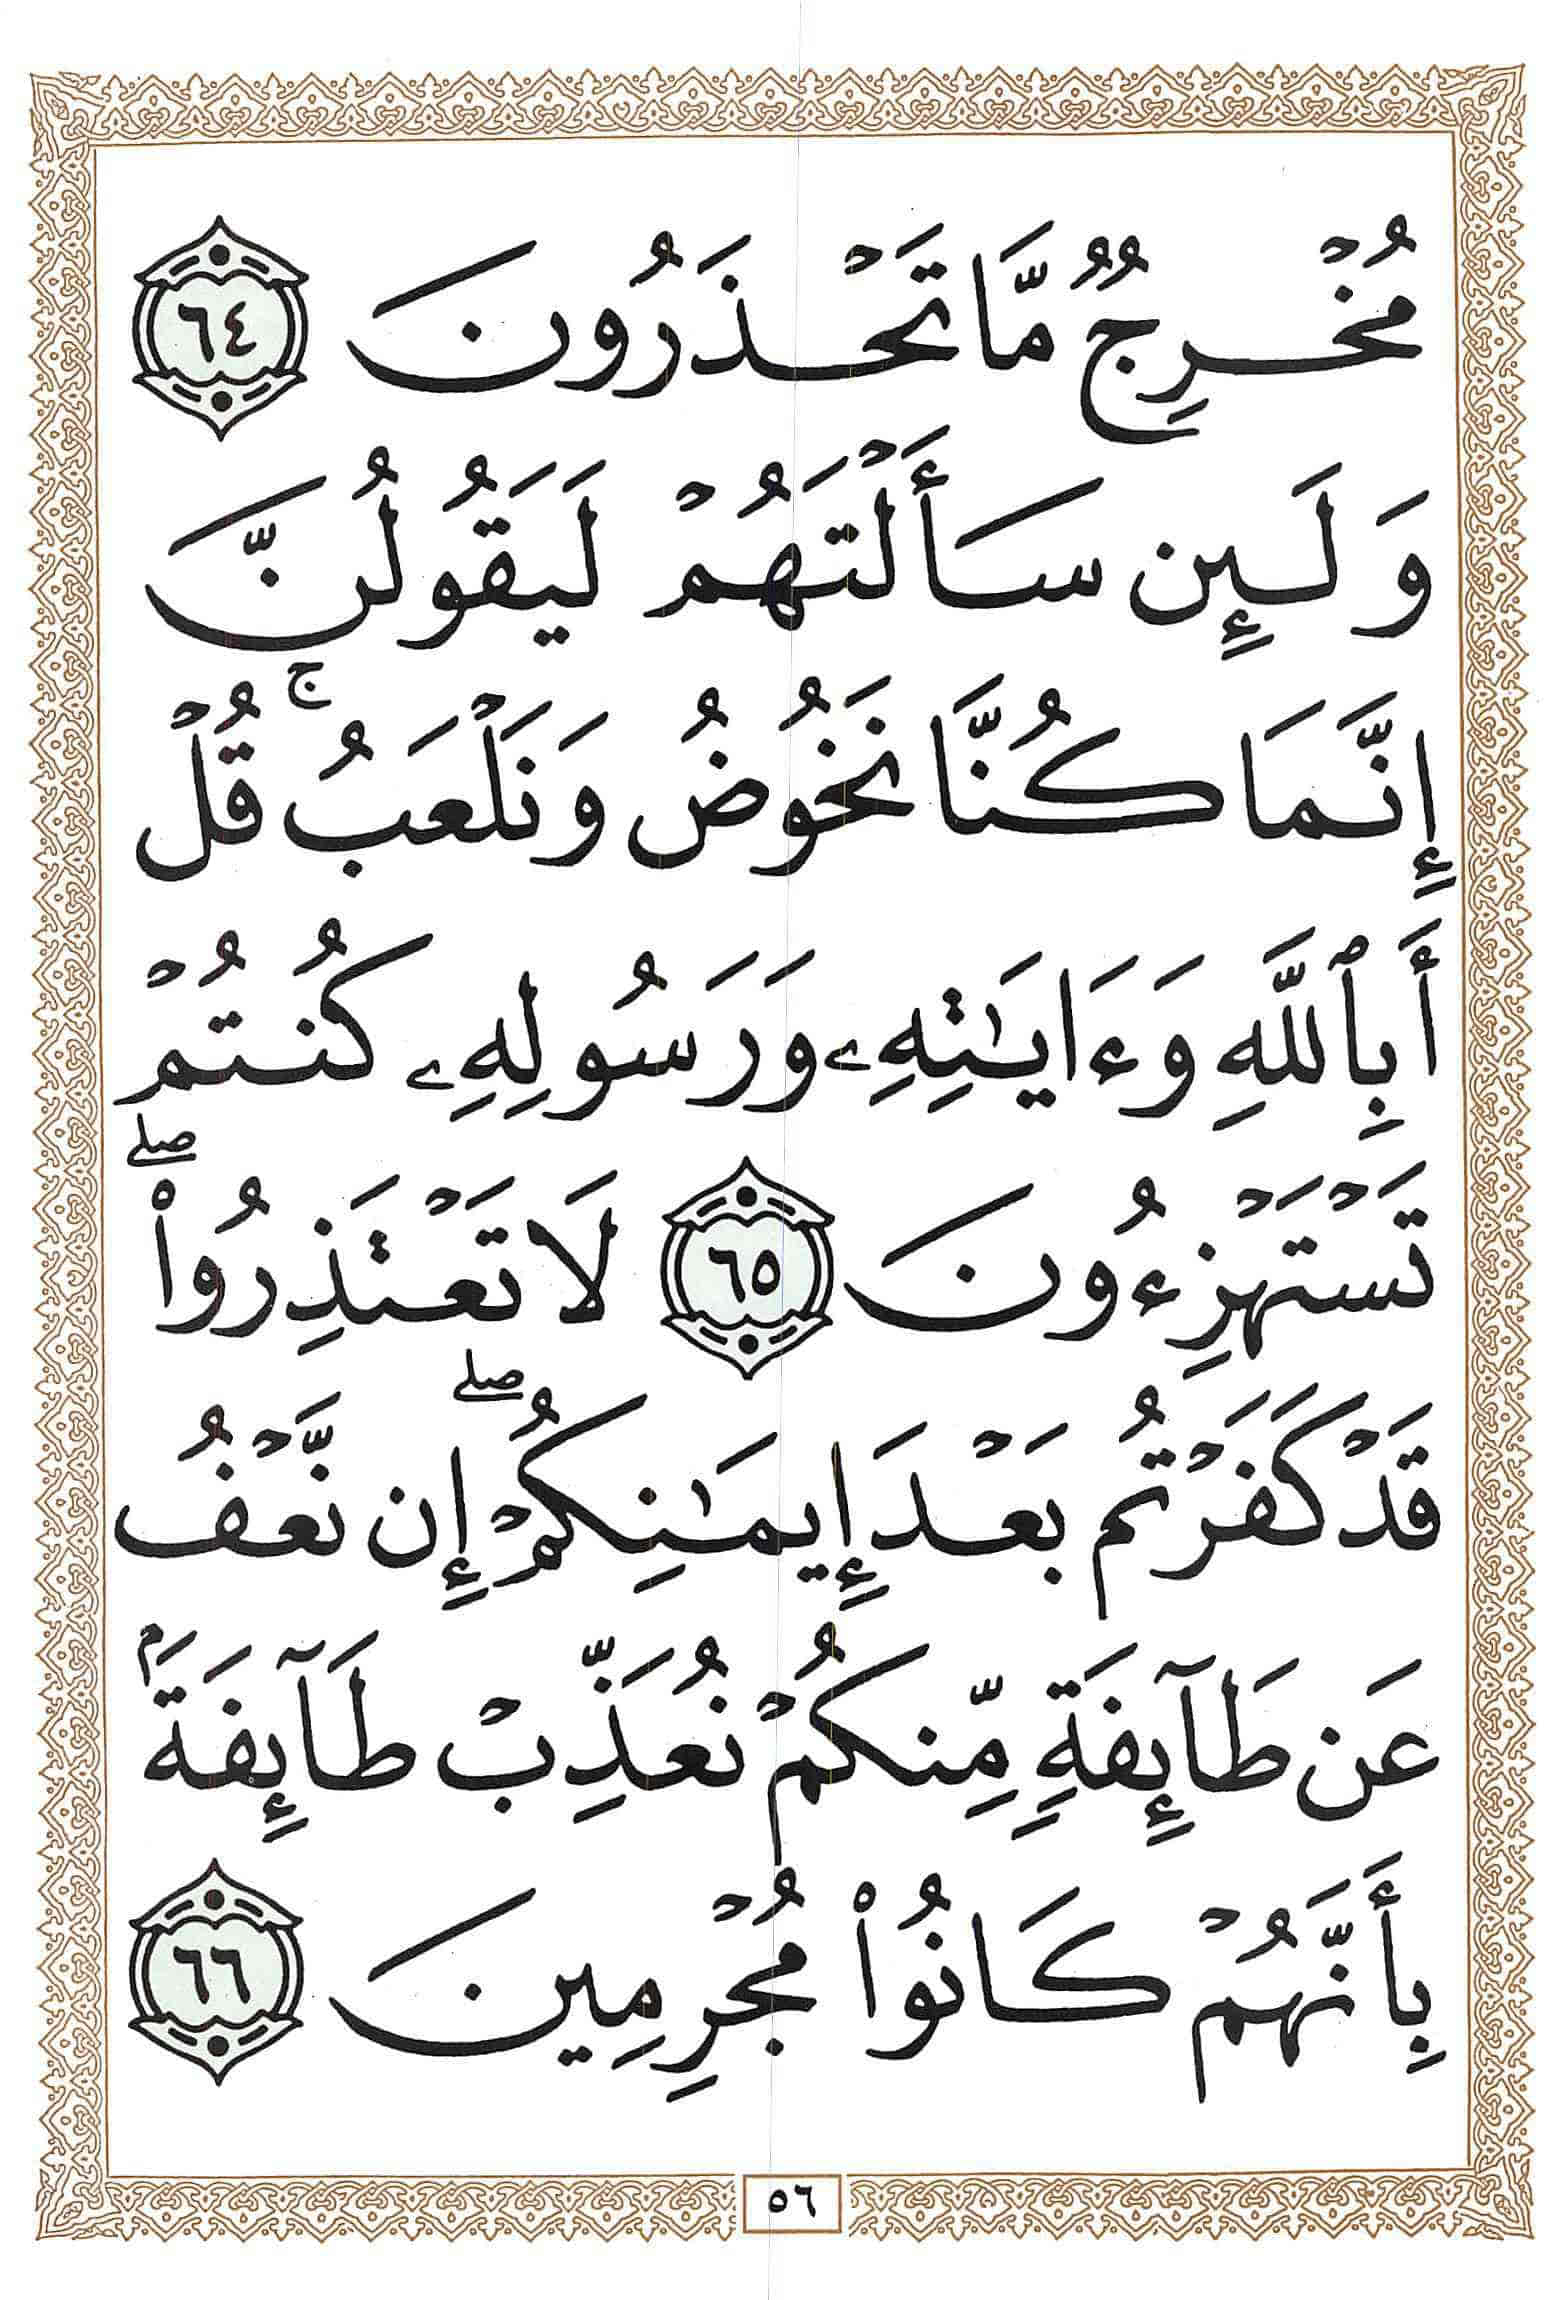 مُخْرِجٌ مَّا تَحْذَرُونَ ٦٤
وَلَئِن سَأَلْتَهُمْ لَيَقُولُنَّ
إِنَّمَا كُنَّا نَخُوضُ وَنَلْعَبُ ۚ قُلْ
أَبِٱللَّهِ وَءَايَـٰتِهِۦ وَرَسُولِهِۦ كُنتُمْ
تَسْتَهْزِءُونَ ٦٥ لَا تَعْتَذِرُوا۟ ۖ
قَدْ كَفَرْتُم بَعْدَ إِيمَـٰنِكُمْ ۖ إِن نَّعْفُ
عَن طَآئِفَةٍ مِّنكُمْ نُعَذِّبْ طَآئِفَةَۢ
بِأَنَّهُمْ كَانُوا۟ مُجْرِمِينَ ٦٦
٥٦